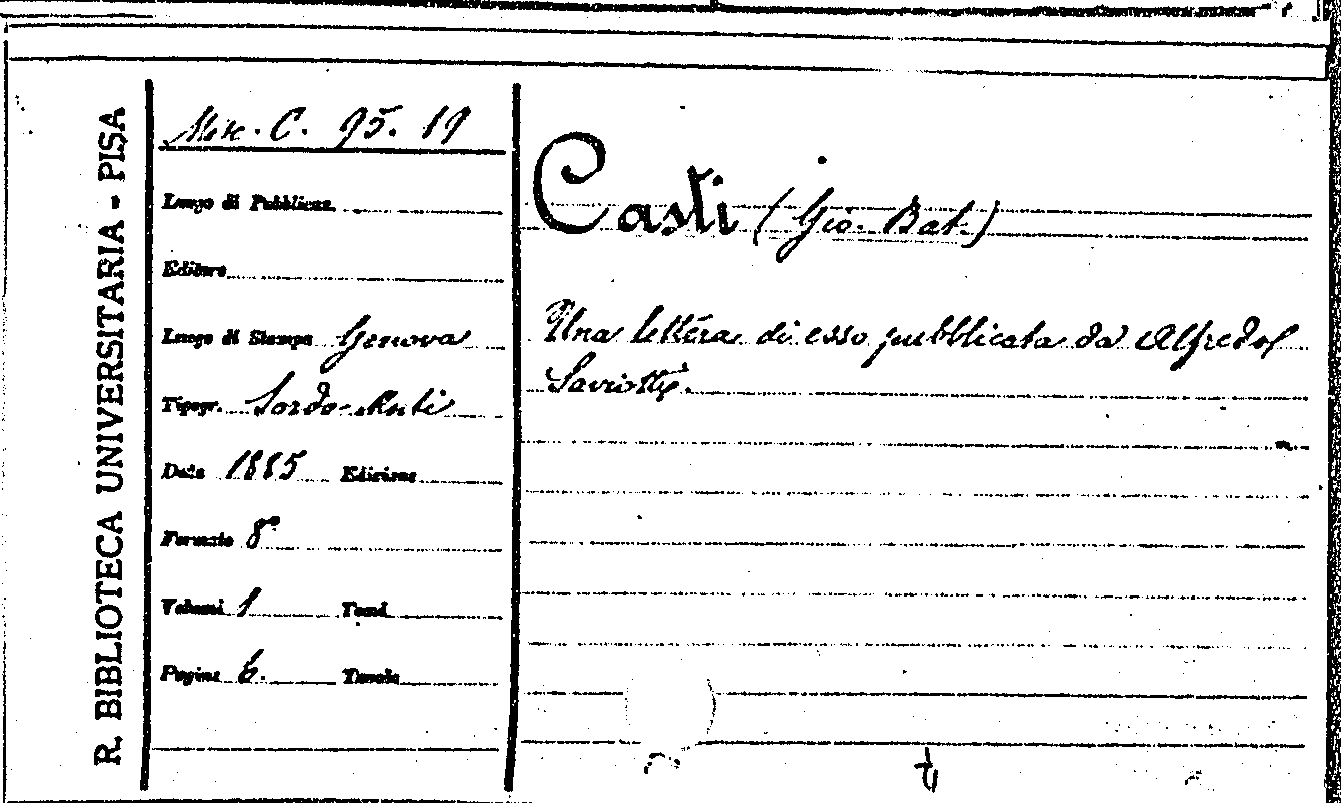 R. BIBLIOTECA UNIVERSITARIA - PISA
Misc. C. 95. 19
Luogo di Pubblicaz.
Editore
Luogo di Stampa Genova
Tipogr. Sordo-Muti
Data 1885 Edizione
Formato 8°
Volumi 1 Tomi
Pagine 6. Tavole
Casti (Gio. Bat.)
Una lettera di esso pubblicata da Alfredo
Saviotti.